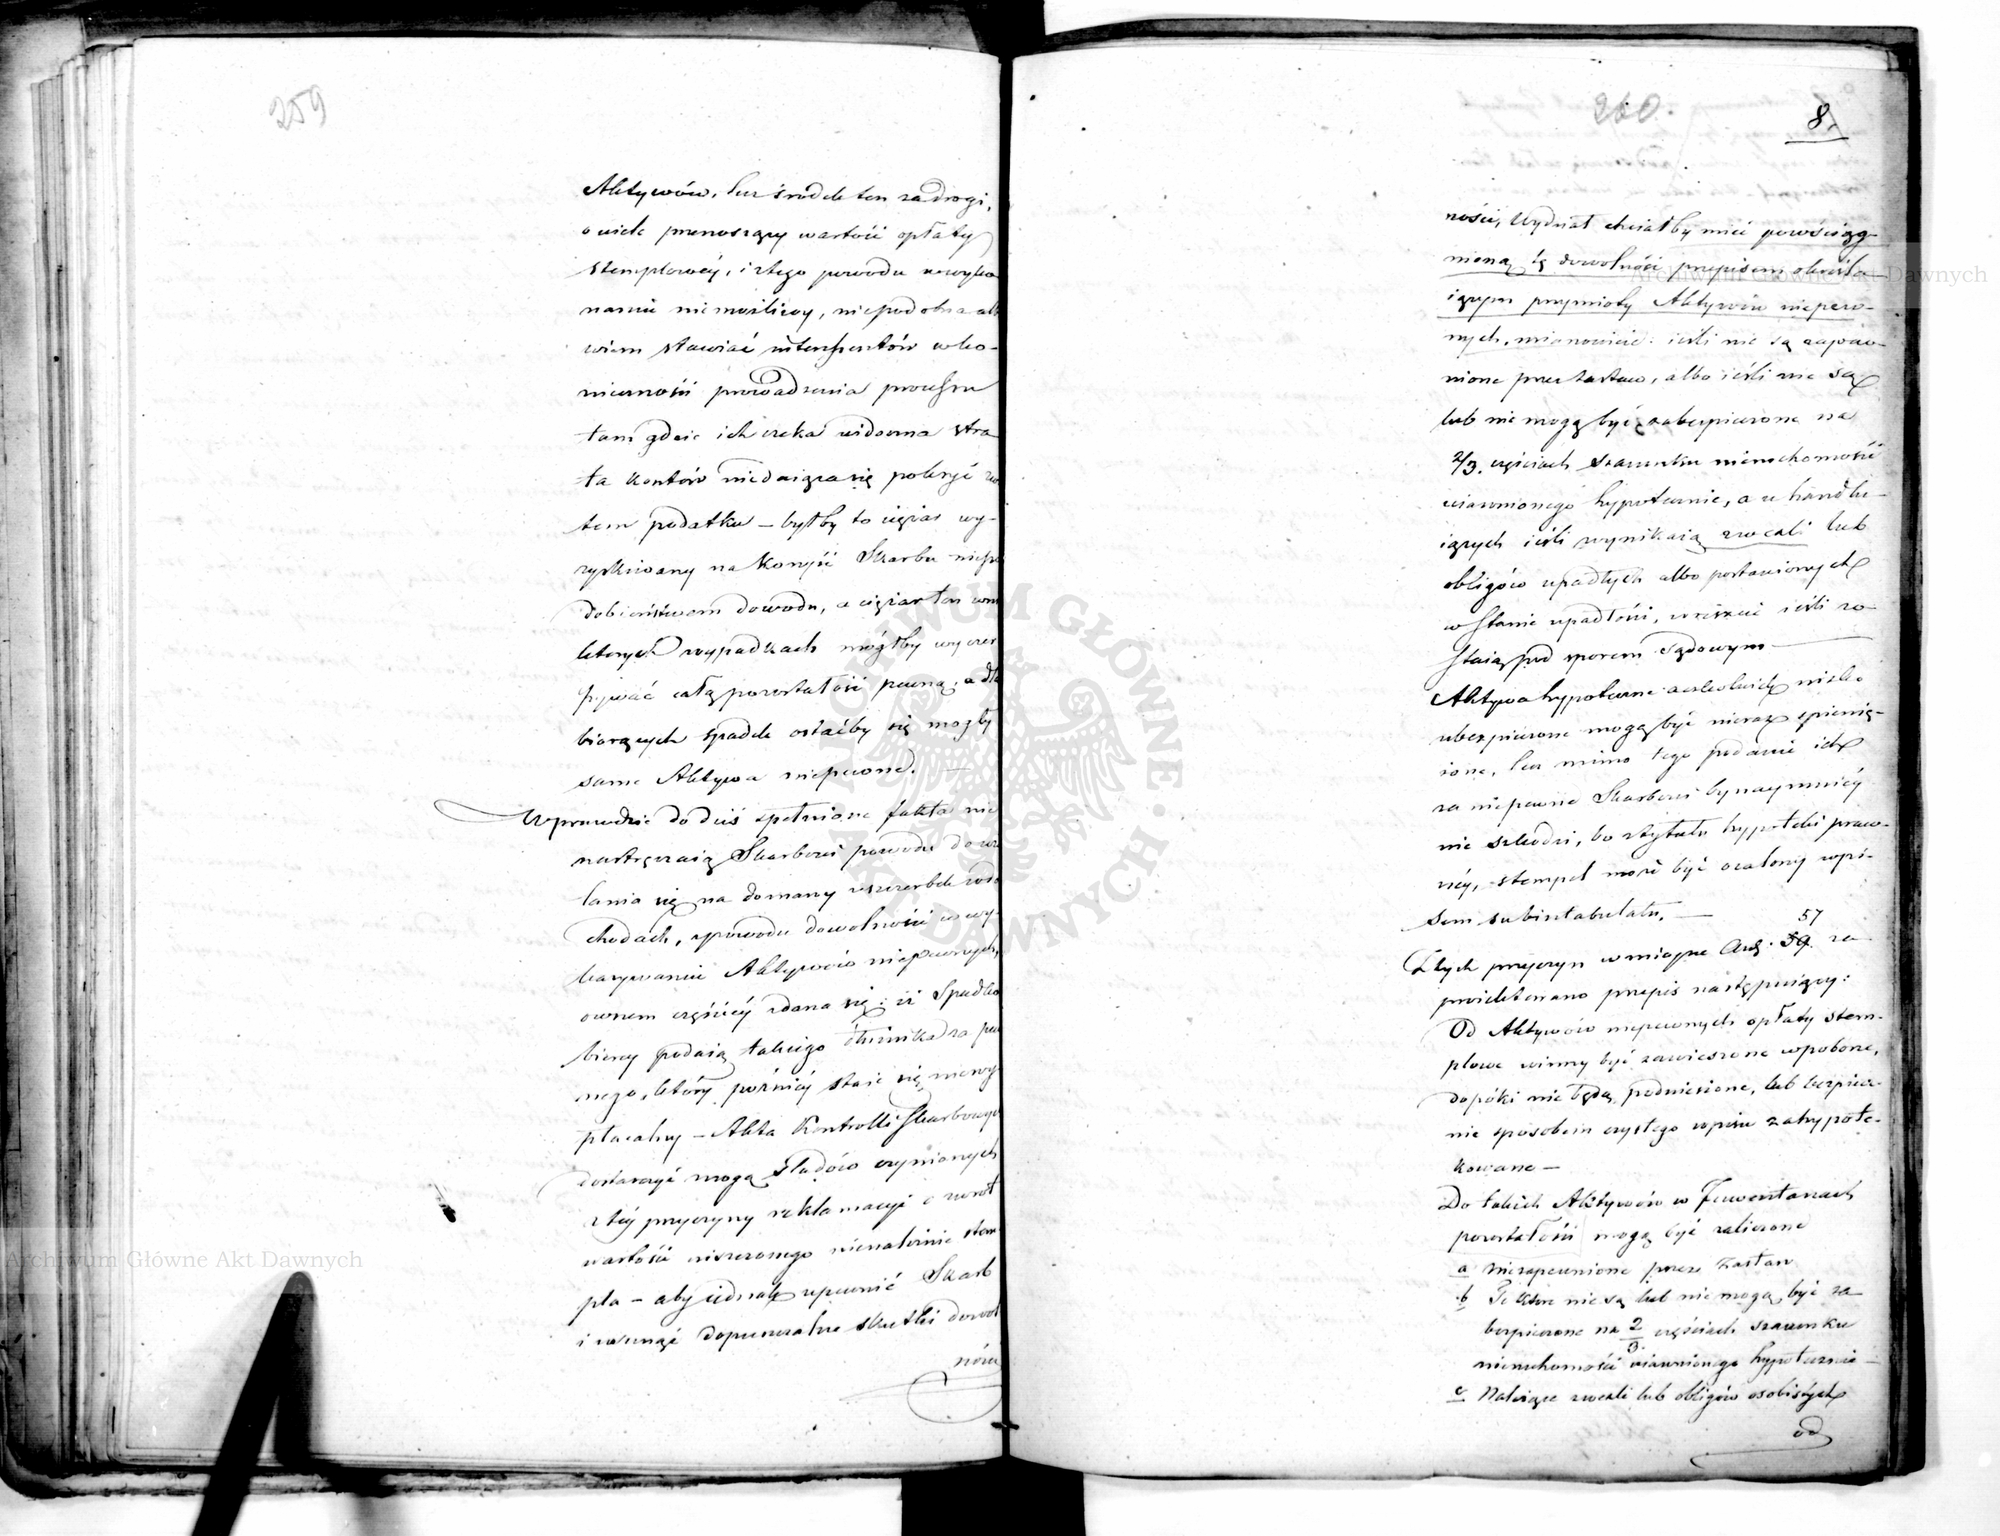 259
Aktywów, lecz środek ten za drogi,
o wiele przenoszący wartość opłaty
stemplowéy, i z tego powodu w wyko
naniu niemożliwy, niepodobna al
bowiem stawiać interessentów w ko-
nieczności prowadzenia processu
tam gdzie ich czeka widoczna stra
ta kosztów niedaiąca się pokryć
tem podatku – byłby to ciężar wy-
zyskiwany na korzyść Skarbu niepo
dobieństwem dowodu, a ciężar ten
których wypadkach mógłby wyczer
pywać całą pozostałość pewną, a dla
biorących spadek ostaćby się mogły
same Aktywa niepewne. —
Wprawdzie do dziś spełnione fakta nie
nastręczaią Skarbowi powodu do uża
lania się na doznany uszczerbek w do
chodach, z powodu dowolności w wy-
kazywaniu Aktywów niepewnych,
owszem częściéy zdarza się: iż Spadko
biercy podaią takiego dłużnika za pew
nego, który późniéy staie się niewy
płacalny – Akta Kontrolli Skarbowych
dostarczyć mogą śladów czynionych
z téy przyczyny reklamacyi o zwrot
wartości uiszczonego nienależnie stem
pla – aby iednak upewnić Skarb
i usunąć dopuszczalne skutki dowol
ności
260.
87
ności, Wydział chciałby mieć powściąg-
nioną tę dowolność przepisem określa-
iącym przymioty Aktywów niepew-
nych, mianowicie: ieśli nie są zapew-
nione przez zastaw, albo ieśli nie są
lub nie mogą być zabezpieczone na
2/3. częściach szacunku nieruchomości
uiawnionego hypotecznie, a u handlu-
iących ieśli wynikaią z wexli lub
obligów upadłych albo postawionych
w stanie upadłości, wreszcie ieśli zo-
staią pod sporem Sądowym —
Aktywa hypoteczne aczkolwiek nieu-
bezpieczone mogą być nieraz spienię-
żone, lecz mimo tego podanie ich
za niepewne Skarbowi bynaymniéy
nie szkodzi, bo z tytułu hypoteki praw-
néy, stempel może być ocalony wpi-
sem subintabulatu. —
57
Z tych przyczyn w mieysce Art. 59. za-
proiektowano przepis następuiący:
Od Aktywów niepewnych opłaty stem-
plowe winny być zawieszone w poborze,
dopóki nie będą podniesione, lub bezpiecz-
nie sposobem czystego wpisu zahypote-
kowane —
Do takich Aktywów w Inwentarzach
pozostałości mogą być zaliczone
a niezapewnione przez Zastaw
b Te które nie są lub nie mogą być za
bezpieczone na 2/3. częściach szacunku
nieruchomości uiawnionego hypotecznie —
c Należące z wexli lub obligów osobistych
od